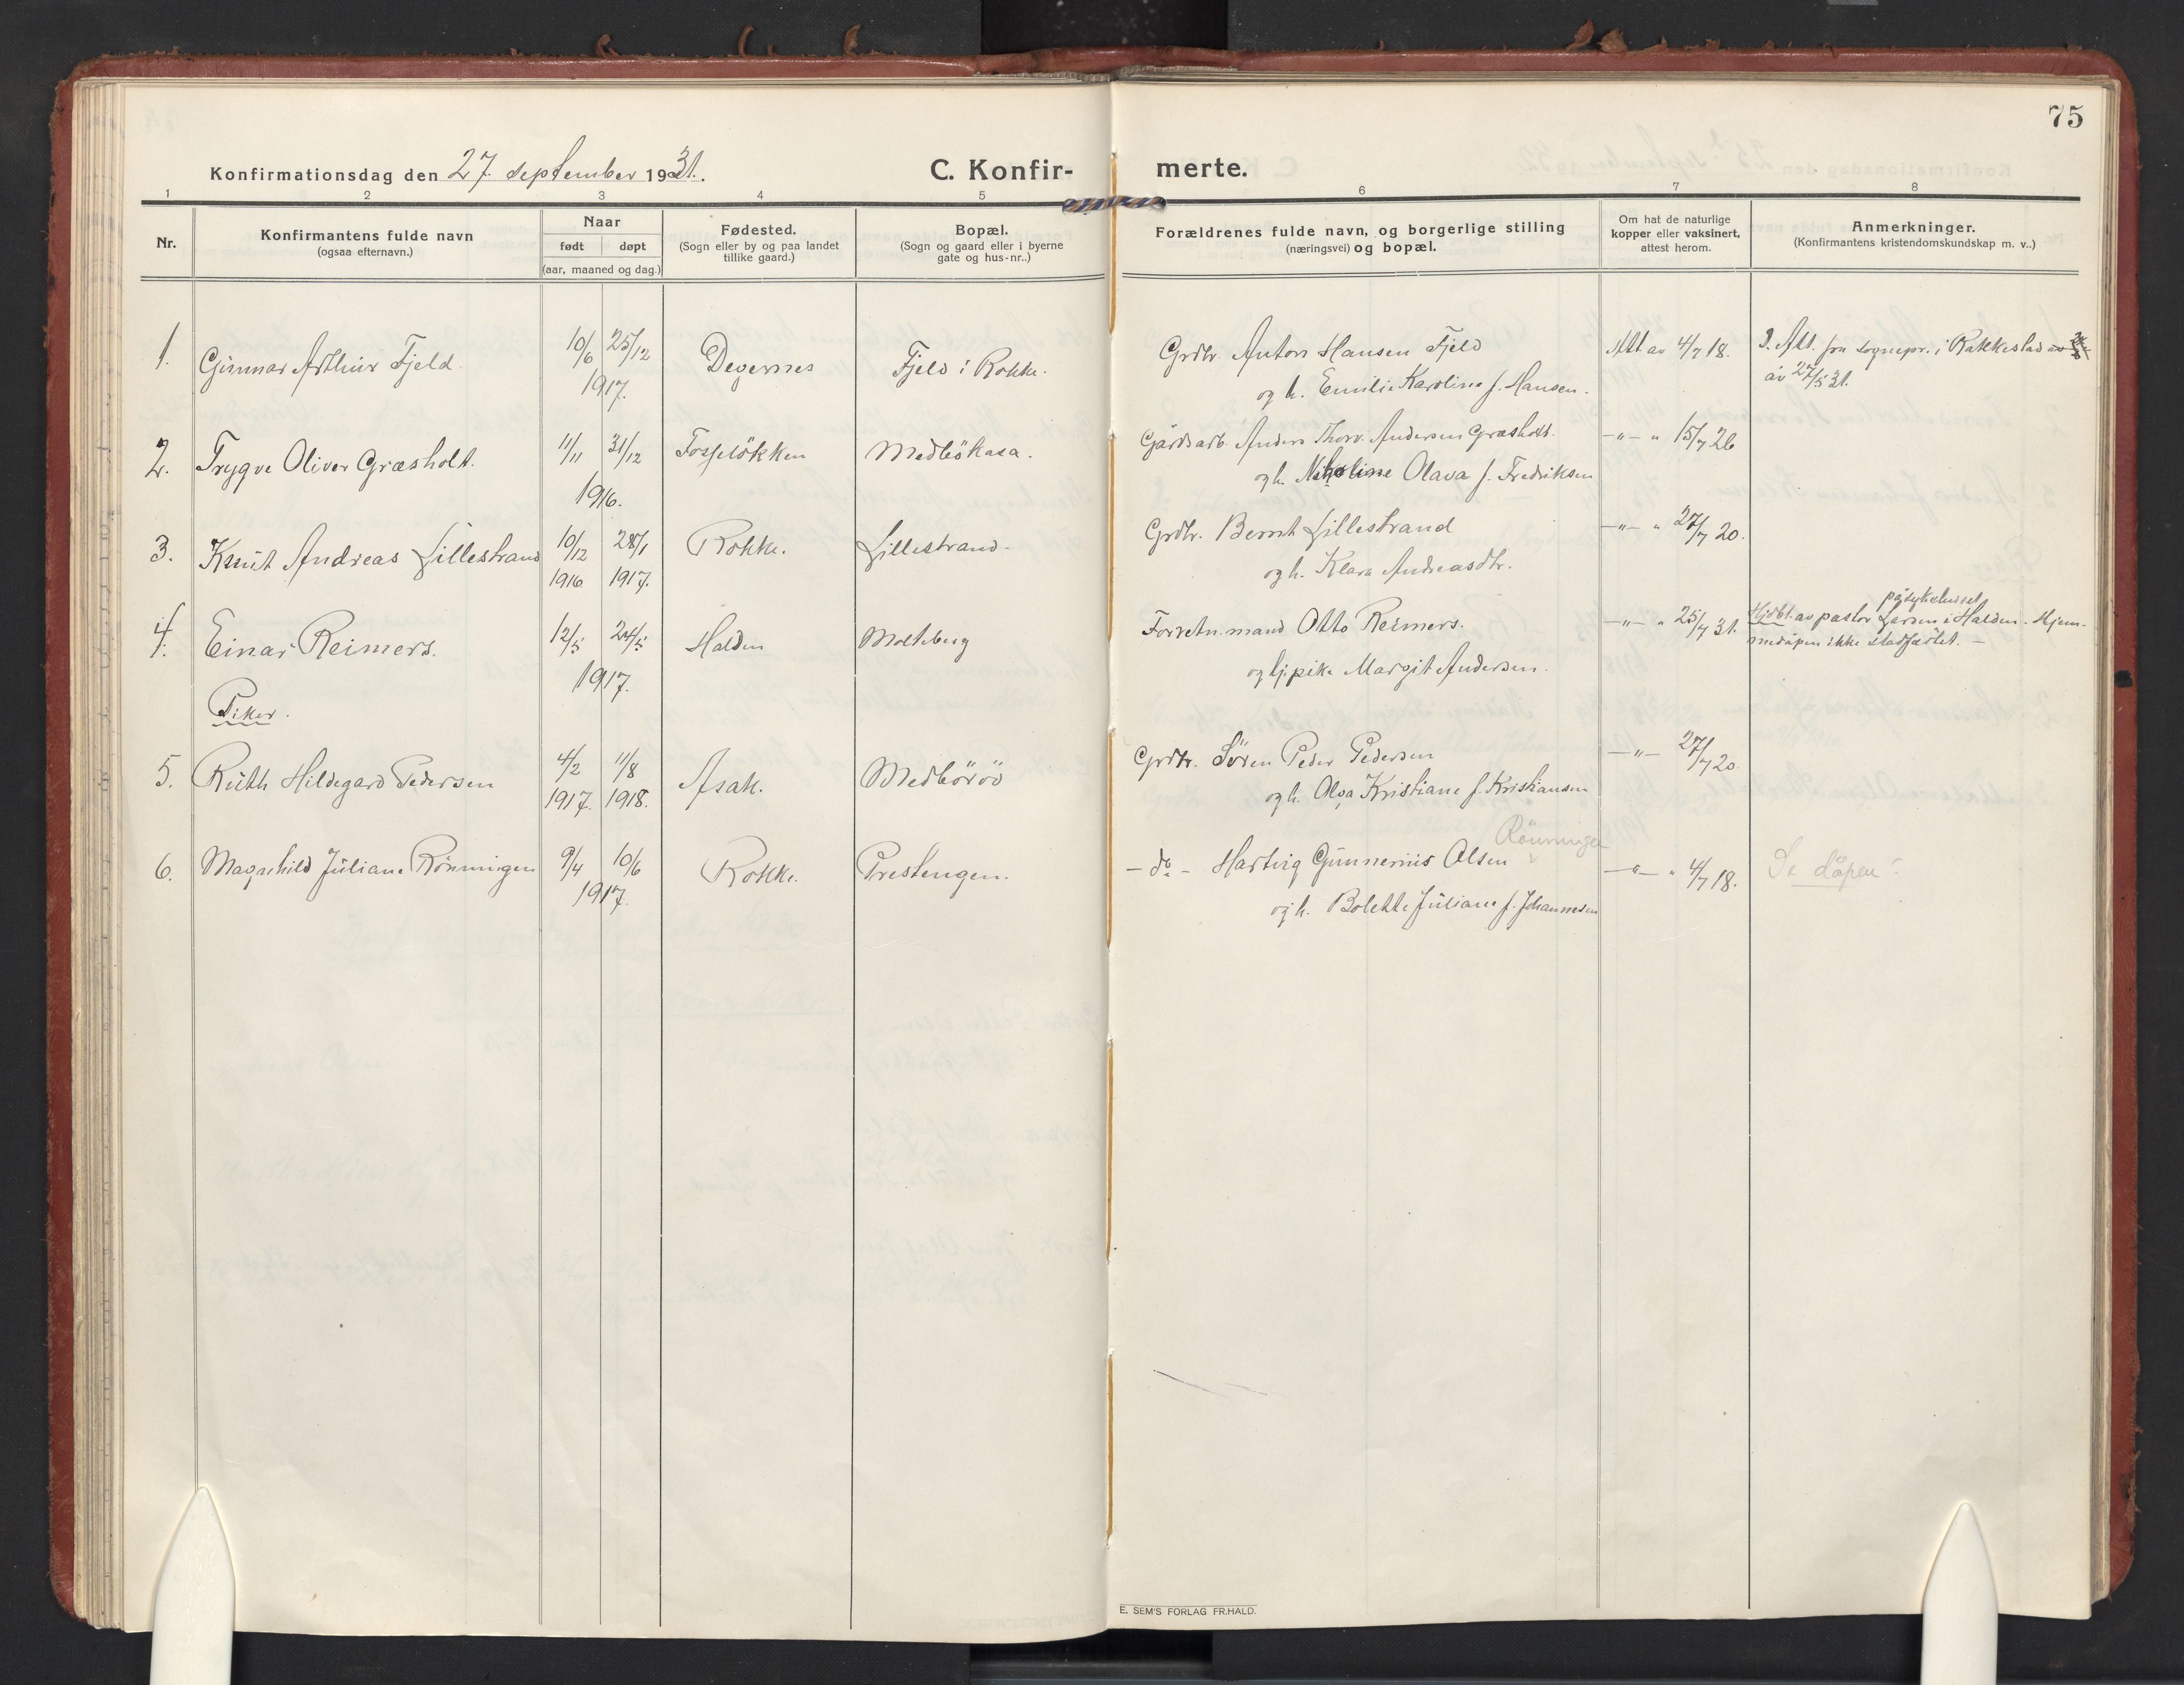 75
Konfirmationsdag den 27. september 1931.
C. Konfir-
merte.
1 2 3 4 5 6 7 8
Nr.
Konfirmantens fulde navn
(ogsaa efternavn.)
Naar
født døpt
(aar, maaned og dag.)
Fødested.
(Sogn eller by og paa landet
tillike gaard.)
Bopæl.
(Sogn og gaard eller i byerne
gate og hus-nr..)
Forældrenes fulde navn, og borgerlige stilling
(næringsvei) og bopæl.
Om hat de naturlige
kopper eller vaksinert,
attest herom.
Anmerkninger.
(Konfirmantens kristendomskundskap m. v..)
1. Gunnar Arthur Fjeld 10/6 25/12 Degernes Fjeld i Rokke. Grdbr. Anton Hansen Fjeld Att av 4/7 18. D. Att. fra sognepr. i Rakkestad
1917. og h. Emilie Karoline f. Hansen. av 27/5 31.
2. Trygve Oliver Græsholt. 11/11 31/12 Fosseløkken Medbökasa. Gårdsarb. Anders Thorv. Andersen Græsholt. -"- " 15/7 26
1916. og h. Nikoline Olava f. Fredriksen
3. Knut Andreas Lillestrand 10/12 28/1 Rokke. Lillestrand. Grdbr. Bernt Lillestrand -"- " 27/7 20.
1916 1917. og h. Klara Andreasdtr.
på sykehuset
4. Einar Reimers. 12/5 24/5 Halden Molteberg Forretn.mand Otto Reimers. -"- " 25/7 31. Hjdbt. av pastor Larsen i Halden. Hjem-
1917. og pike Margit Andersen. medåpen ikke stadfæstet. -
Piker.
5. Ruth Hildegard Pedersen 4/2 11/8 Asak. Medböröd Grdbr. Sören Peder Pedersen -"- 27/7 20
1917. 1918. og h. Olga Kristiane f. Kristiansen
Rönningen
6. Magnhild Juliane Rönningen 9/4 10/6 Rokke. Prestengen. - do - Hartvig Gunnerius Olsen -"- " 4/7 18. Se dåpen!
1917. og h. Bolette Juliane f. Johannesen
E. SEM'S FORLAG FR.HALD.